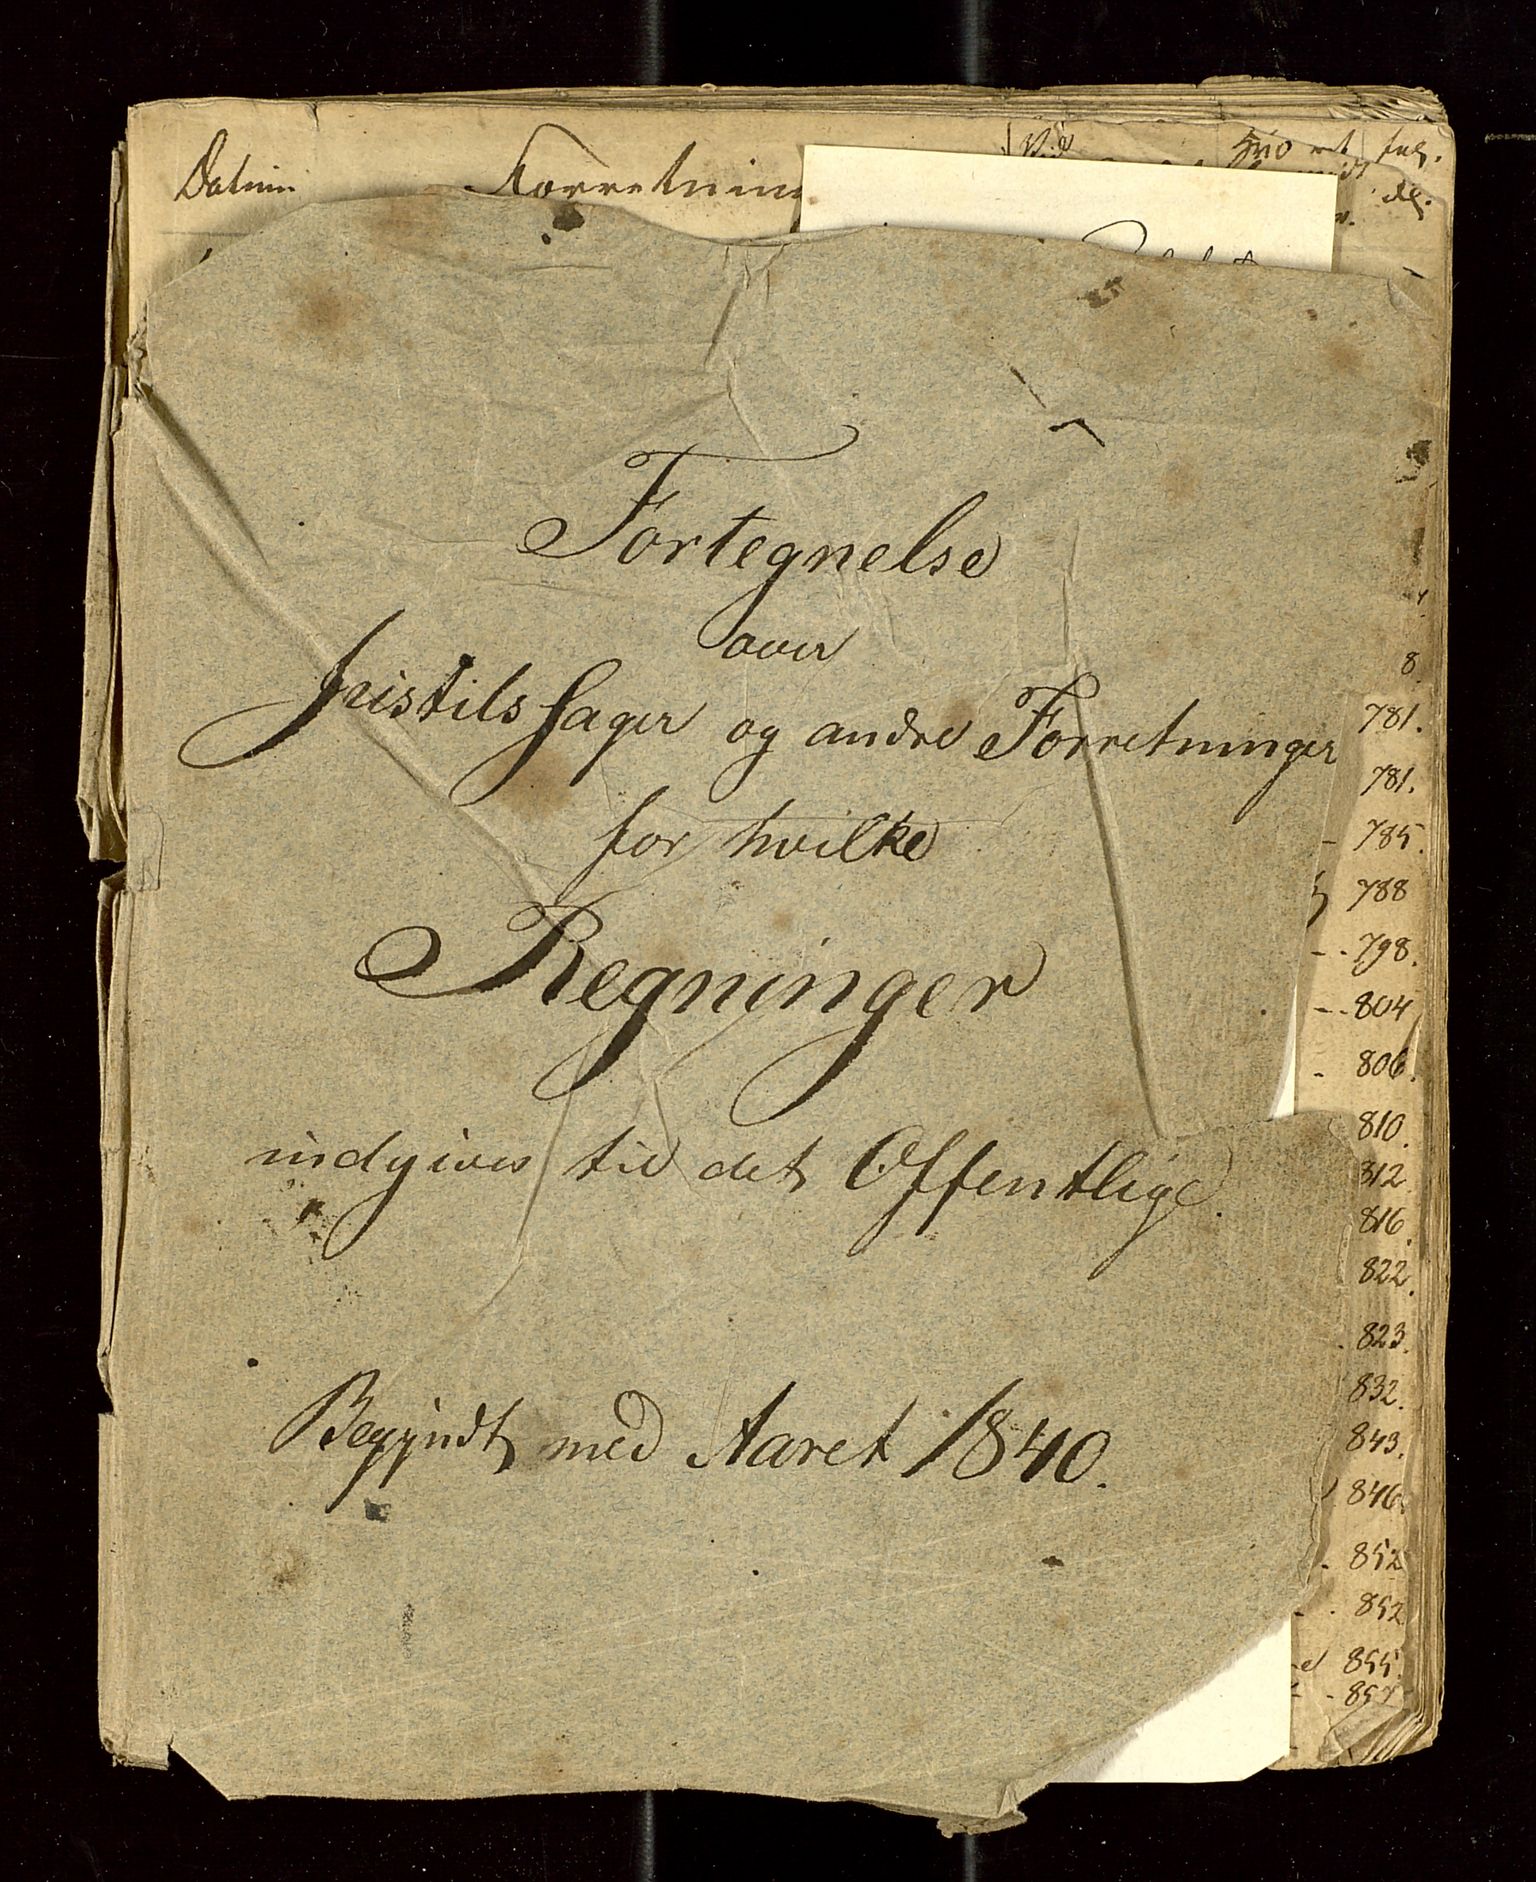 Datum Forretnin
Fortegnelse
over
Justits Sager og andre Forretninger
for hvilke
Regninger
indgives til det Offentlige.
Begyndt med Aaret 1840.
8
781.
781.
785.
788
798.
804
806.
810.
812
816.
822.
823.
832.
843.
846.
852
852
855.
857